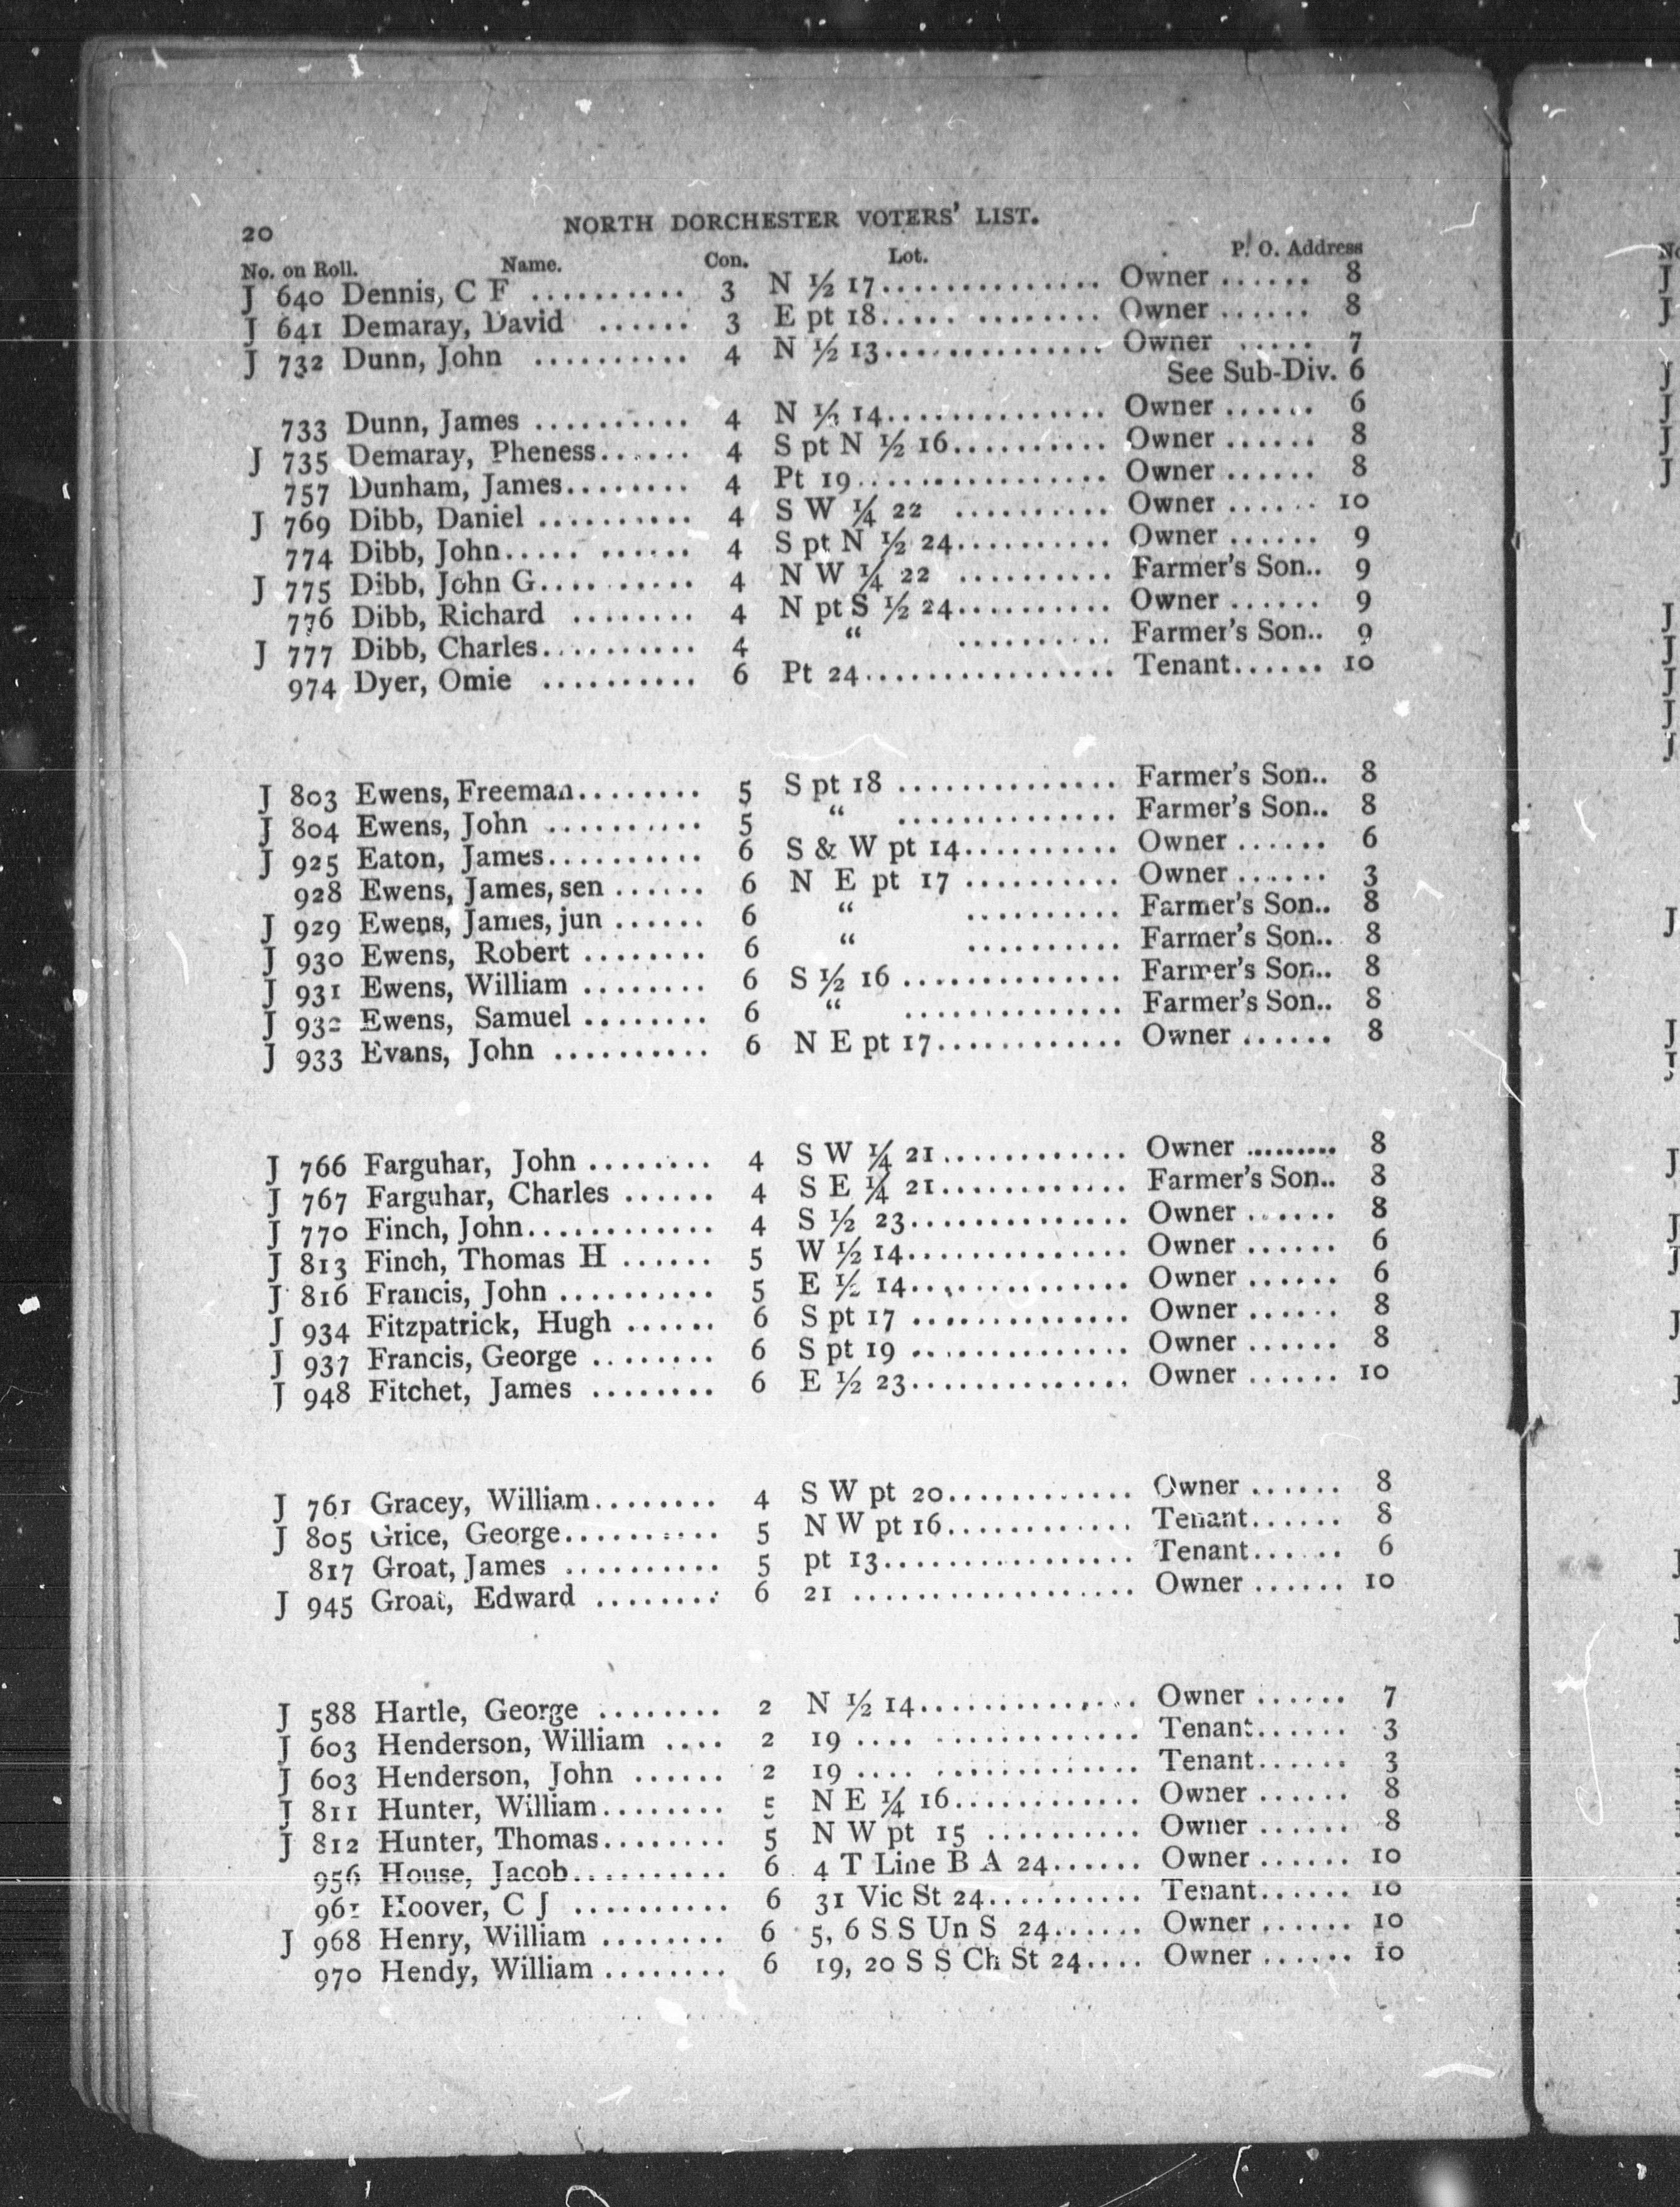 20 NORTH DORCHESTER VOTERS' LIST.
No. on Roll. Name. Con. Lot. P. O. Address
J 640 Dennis, C F .......... 3 N ½ 17............... Owner ...... 8
J 641 Demaray, David ...... 3 E pt 18..... ........ Owner ...... 8
J 732 Dunn, John .......... 4 N ½ 13............... Owner ..... 7
See Sub-Div. 6
733 Dunn, James .......... 4 N ½ 14............... Owner ...... 6
J 735 Demaray, Pheness...... 4 S pt N ½ 16.......... Owner ...... 8
757 Dunham, James........ 4 Pt 19................ Owner ...... 8
J 769 Dibb, Daniel .......... 4 S W ¼ 22 .......... Owner ...... 10
774 Dibb, John..... ...... 4 S pt N ½ 24.......... Owner ...... 9
J 775 Dibb, John G.......... 4 N W ¼ 22 .......... Farmer's Son.. 9
776 Dibb, Richard ........ 4 N pt S ½ 24.......... Owner ...... 9
J 777 Dibb, Charles.......... 4 “ .......... Farmer's Son.. 9
974 Dyer, Omie .......... 6 Pt 24................ Tenant...... 10
J 803 Ewens, Freeman........ 5 S pt 18 .............. Farmer's Son.. 8
J 804 Ewens, John .......... 5 “ .............. Farmer's Son.. 8
J 925 Eaton, James.......... 6 S & W pt 14.......... Owner ...... 6
928 Ewens, James, sen ...... 6 N E pt 17 .......... Owner ...... 3
J 929 Ewens, James, jun ...... 6 “ .......... Farmer's Son.. 8
J 930 Ewens, Robert ........ 6 “ .......... Farmer's Son.. 8
J 931 Ewens, William ........ 6 S ½ 16 .............. Farmer's Son.. 8
J 932 Ewens, Samuel ........ 6 “ .............. Farmer's Son.. 8
J 933 Evans, John .......... 6 N E pt 17............ Owner ...... 8
J 766 Farguhar, John ........ 4 S W ¼ 21............ Owner ......... 8
J 767 Farguhar, Charles ...... 4 S E ¼ 21............ Farmer's Son.. 8
J 770 Finch, John............ 4 S ½ 23.............. Owner ...... 8
J 813 Finch, Thomas H ...... 5 W ½ 14.............. Owner ...... 6
J 816 Francis, John .......... 5 E ½ 14.............. Owner ...... 6
J 934 Fitzpatrick, Hugh ...... 6 S pt 17 .............. Owner ...... 8
J 937 Francis, George ........ 6 S pt 19 .............. Owner ...... 8
J 948 Fitchet, James ........ 6 E ½ 23.............. Owner ...... 10
J 761 Gracey, William........ 4 S W pt 20............ Owner ...... 8
J 805 Grice, George.......... 5 N W pt 16............ Tenant...... 8
817 Groat, James .......... 5 pt 13................ Tenant...... 6
J 945 Groat, Edward ........ 6 21 .................. Owner ...... 10
J 588 Hartle, George ........ 2 N ½ 14.............. Owner ...... 7
J 603 Henderson, William .... 2 19 .... ............. Tenant...... 3
J 603 Henderson, John ...... 2 19 .... ............. Tenant...... 3
J 811 Hunter, William........ 5 N E ¼ 16............ Owner ...... 8
J 812 Hunter, Thomas........ 5 N W pt 15 .......... Owner ...... 8
956 House, Jacob.......... 6 4 T Line B A 24...... Owner ...... 10
961 Hoover, C J .......... 6 31 Vic St 24.......... Tenant...... 10
J 968 Henry, William ........ 6 5, 6 S S Un S 24...... Owner ...... 10
970 Hendy, William ........ 6 19, 20 S S Ch St 24.... Owner ...... 10